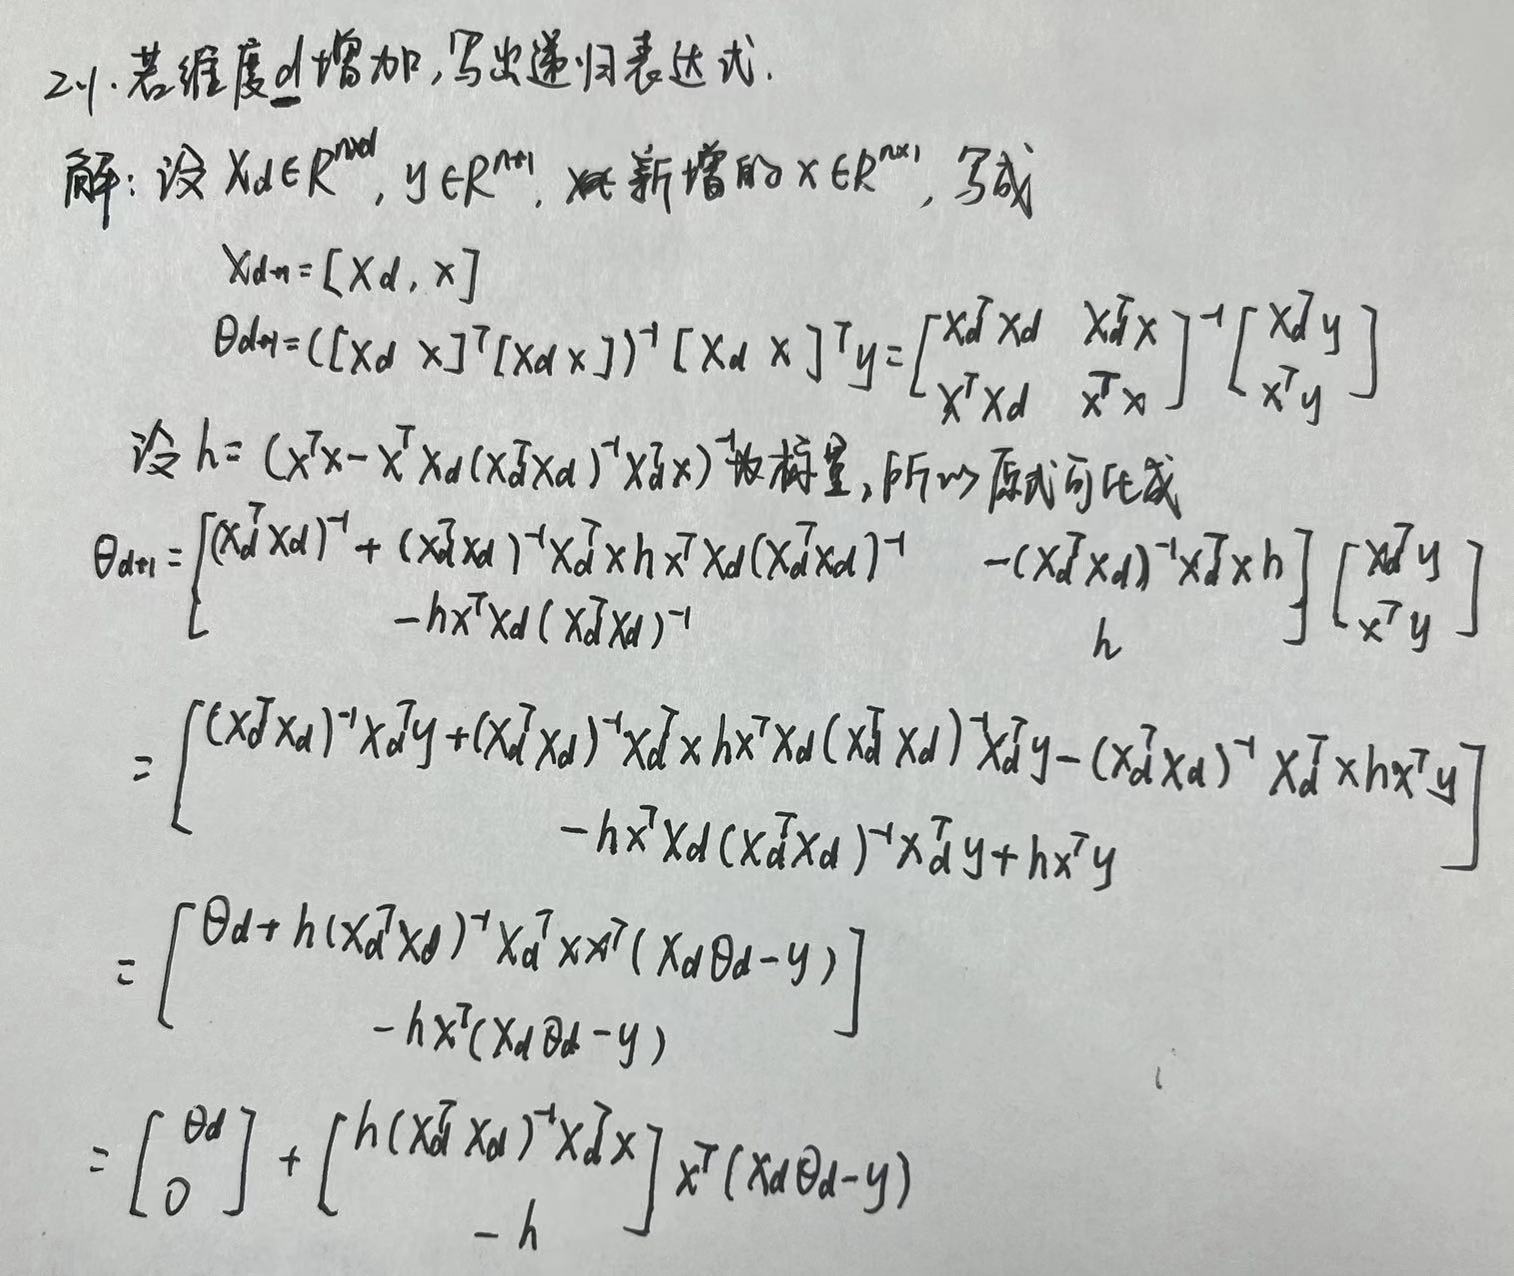 2-1. 若维度d增加,写出递归表达式.
解: 设 Xd∈R^{n×d}, y∈R^{n+1}, 新增的 x∈R^{n×1}, 写成
Xd+1=[Xd, x]
θd+1=([Xd x]ᵀ[Xd x])⁻¹[Xd x]ᵀy=[XdᵀXd Xdᵀx; xᵀXd xᵀx]⁻¹[Xdᵀy; xᵀy]
设 h=(xᵀx-xᵀXd(XdᵀXd)⁻¹Xdᵀx)⁻¹为标量,所以原式可化成
θd+1=[(XdᵀXd)⁻¹+(XdᵀXd)⁻¹XdᵀxhxᵀXd(XdᵀXd)⁻¹ -(XdᵀXd)⁻¹Xdᵀxh; -hxᵀXd(XdᵀXd)⁻¹ h][Xdᵀy; xᵀy]
=[(XdᵀXd)⁻¹Xdᵀy+(XdᵀXd)⁻¹XdᵀxhxᵀXd(XdᵀXd)⁻¹Xdᵀy-(XdᵀXd)⁻¹Xdᵀxhxᵀy; -hxᵀXd(XdᵀXd)⁻¹Xdᵀy+hxᵀy]
=[θd+h(XdᵀXd)⁻¹Xdᵀxxᵀ(Xdθd-y); -hxᵀ(Xdθd-y)]
=[θd; 0]+[h(XdᵀXd)⁻¹Xdᵀx; -h]xᵀ(Xdθd-y)